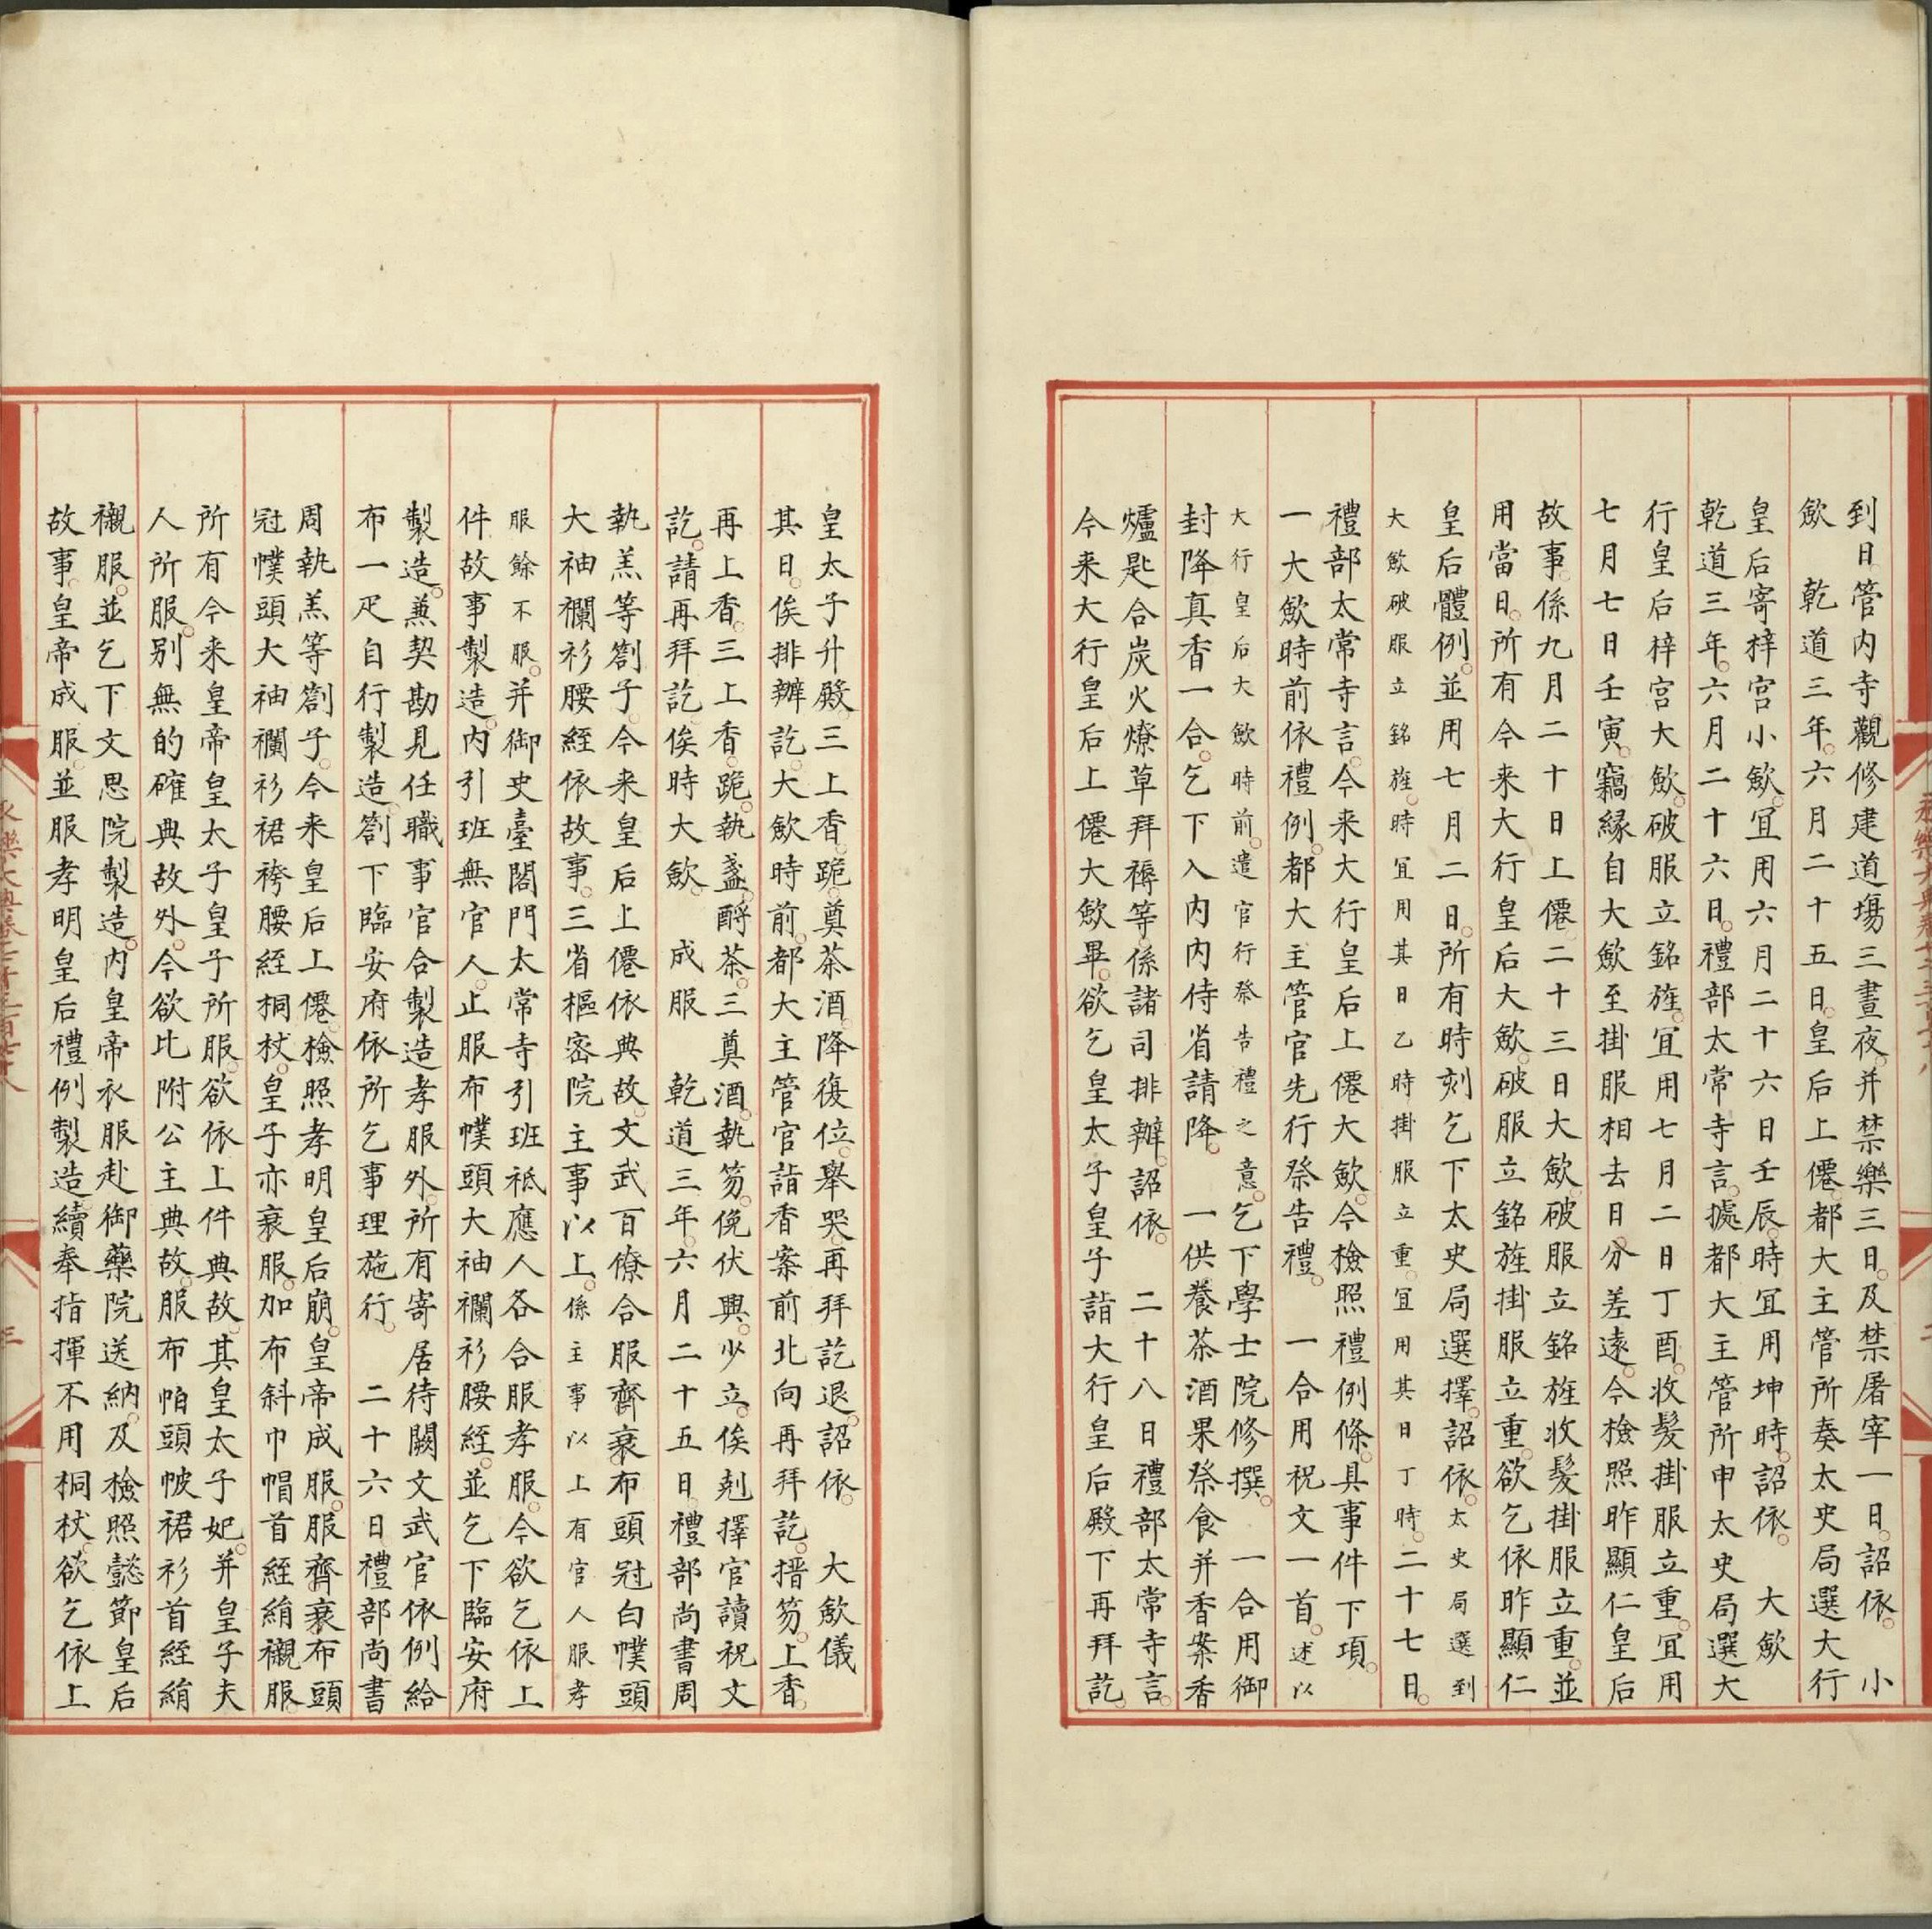 到日管内寺觀修建道場三晝夜并禁樂三日及禁屠宰一日詔依　小
歛　乾道三年六月二十五日皇后上僊都大主管所奏太史局選大行
皇后寄梓宫小歛宜用六月二十六日壬辰時宜用坤時詔依　大歛
乾道三年六月二十六日禮部太常寺言據都大主管所申太史局選大
行皇后梓宫大歛破服立銘旌宜用七月二日丁酉收髪掛服立重宜用
七月七日壬寅竊緣自大歛至掛服相去日分差遠今檢照昨顯仁皇后
故事係九月二十日上僊二十三日大歛破服立銘旌收髪掛服立重並
用當日所有今来大行皇后大歛破服立銘旌掛服立重欲乞依昨顯仁
皇后體例並用七月二日所有時刻乞下太史局選擇詔依太史局選到
大歛破服立銘旌時宜用其日乙時掛服立重宜用其日丁時二十七日
禮部太常寺言今来大行皇后上僊大歛今檢照禮例條具事件下項
一大歛時前依禮例都大主管官先行祭告禮　一合用祝文一首述以
大行皇后大歛時前遣官行祭告禮之意乞下學士院修撰　一合用御
封降真香一合乞下入内内侍省請降　一供養茶酒果祭食并香案香
爐匙合炭火燎草拜褥等係諸司排辦詔依　二十八日禮部太常寺言
今来大行皇后上僊大歛畢欲乞皇太子皇子詣大行皇后殿下再拜訖
皇太子升殿三上香跪奠茶酒降復位舉哭再拜訖退詔依　大歛儀
其日俟排辦訖大歛時前都大主管官詣香案前北向再拜訖搢笏上香
再上香三上香跪執盞酹茶三奠酒執笏俛伏興少立俟剋擇官讀祝文
訖請再拜訖俟時大歛　成服　乾道三年六月二十五日禮部尚書周
執羔等劄子今来皇后上僊依典故文武百僚合服齊衰布頭冠白幞頭
大袖襴衫腰絰依故事三省樞密院主事以上係主事以上有官人服孝
服餘不服并御史臺閤門太常寺引班祗應人各合服孝服今欲乞依上
件故事製造内引班無官人止服布幞頭大袖襴衫腰絰並乞下臨安府
製造兼契勘見任職事官合製造孝服外所有寄居待闕文武官依例給
布一疋自行製造劄下臨安府依所乞事理施行　二十六日禮部尚書
周執羔等劄子今来皇后上僊檢照孝明皇后崩皇帝成服服齊衰布頭
冠幞頭大袖襴衫裙袴腰絰桐杖皇子亦衰服加布斜巾帽首絰絹襯服
所有今来皇帝皇太子皇子所服欲依上件典故其皇太子妃并皇子夫
人所服别無的確典故外今欲比附公主典故服布帕頭帔裙衫首絰絹
襯服並乞下文思院製造内皇帝衣服赴御藥院送納及檢照懿節皇后
故事皇帝成服並服孝明皇后禮例製造續奉指揮不用桐杖欲乞依上